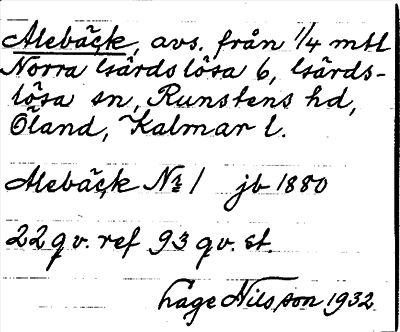 Alebäck, avs. från 1/4 mtl
Norra Gärdslösa 6, Gärds-
lösa sn, Runstens hd,
Öland, Kalmar l.
Alebäck No 1 jb 1880
22 qv. ref 93 qv. st.
Håge Nilsson 1932